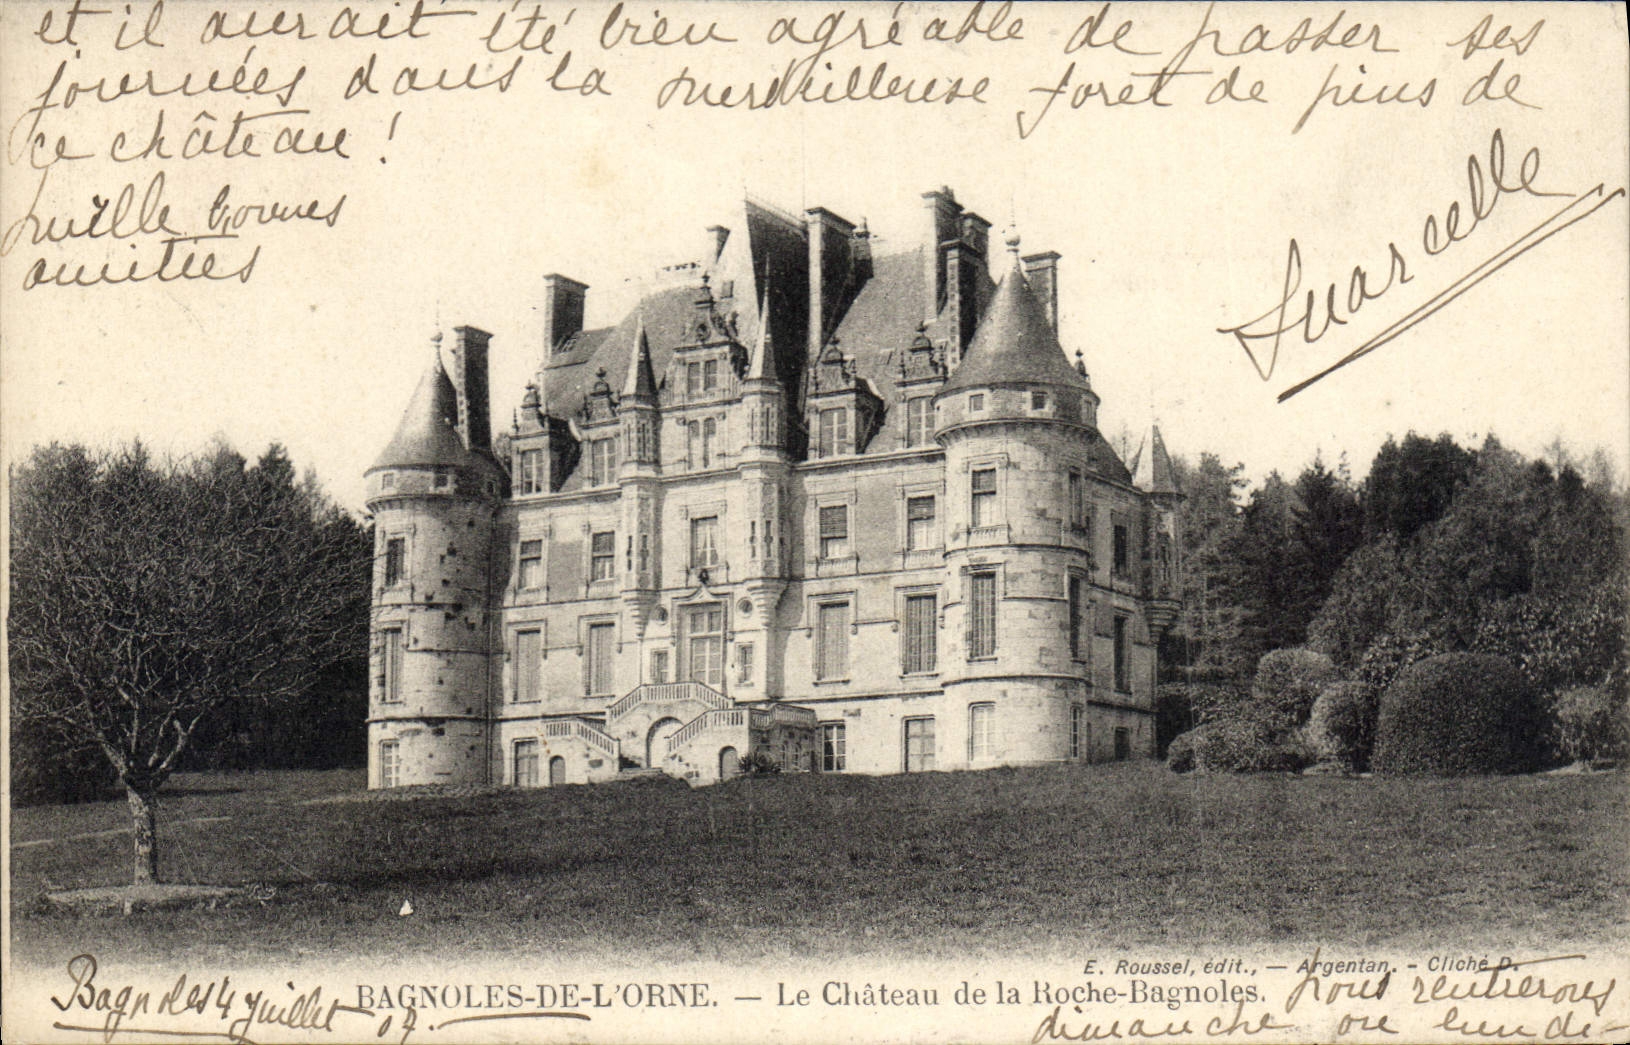 et il aurait été bien agréable de passer ses
journées dans la merveilleuse forêt de pins de
ce château !
mille bonnes
amitiés
Marcelle
E. Roussel, édit., — Argentan. - Cliché D.
BAGNOLES-DE-L'ORNE. — Le Château de la Roche-Bagnoles.
Bagnoles 4 Juillet 07.
Nous rentrerons
dimanche ou lundi-